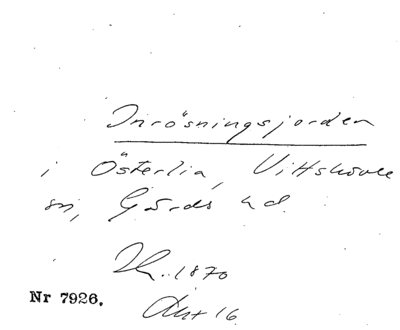 Inrösningsjorden
i Österlia, Vittskövle
sn, Gärds hd.
1870
Nr 7926.
16